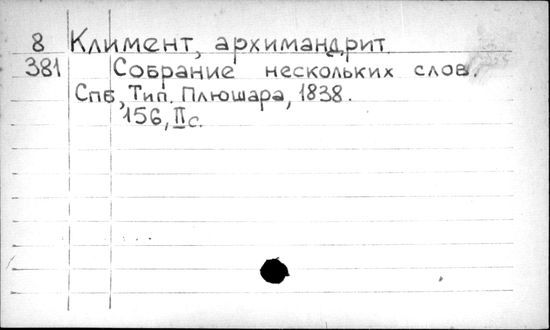 8 Климент, архимандрит
381 Собрание нескольких слов.
Спб, Тип. Плюшара, 1838.
156, II с.